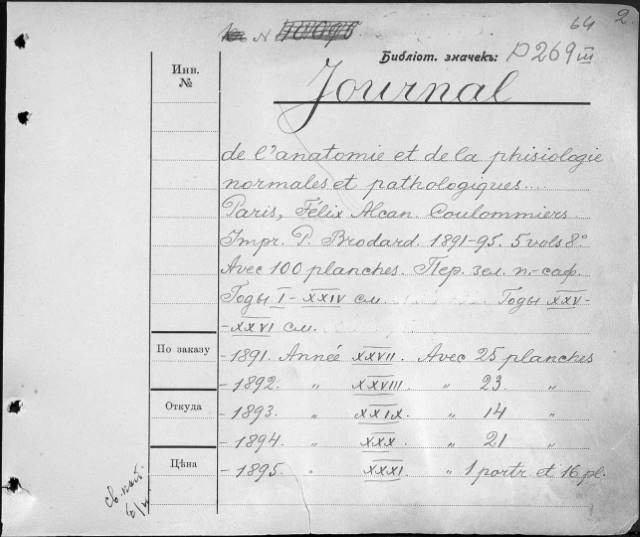 64 2.
№
Библіот. значекъ: P 269 III
Инв.
№
Journal
de l'anatomie et de la phisiologie
normales et pathologiques....
Paris, Félix Alcan. Coulommiers
Impr. P. Brodard. 1891-95. 5 vols 8°
Avec 100 planches. Пер. зел. п.-саф.
Годы I-XXIV см. Годы XXV-
-XXVI см.
По заказу
-1891. Année XXVII. Avec 25 planches
-1892. " XXVIII " 23 "
Откуда
-1893. " XXIX " 14 "
-1894. " XXX " 21 "
Цѣна
-1895. " XXXI " 1 portr. et 16 pl.